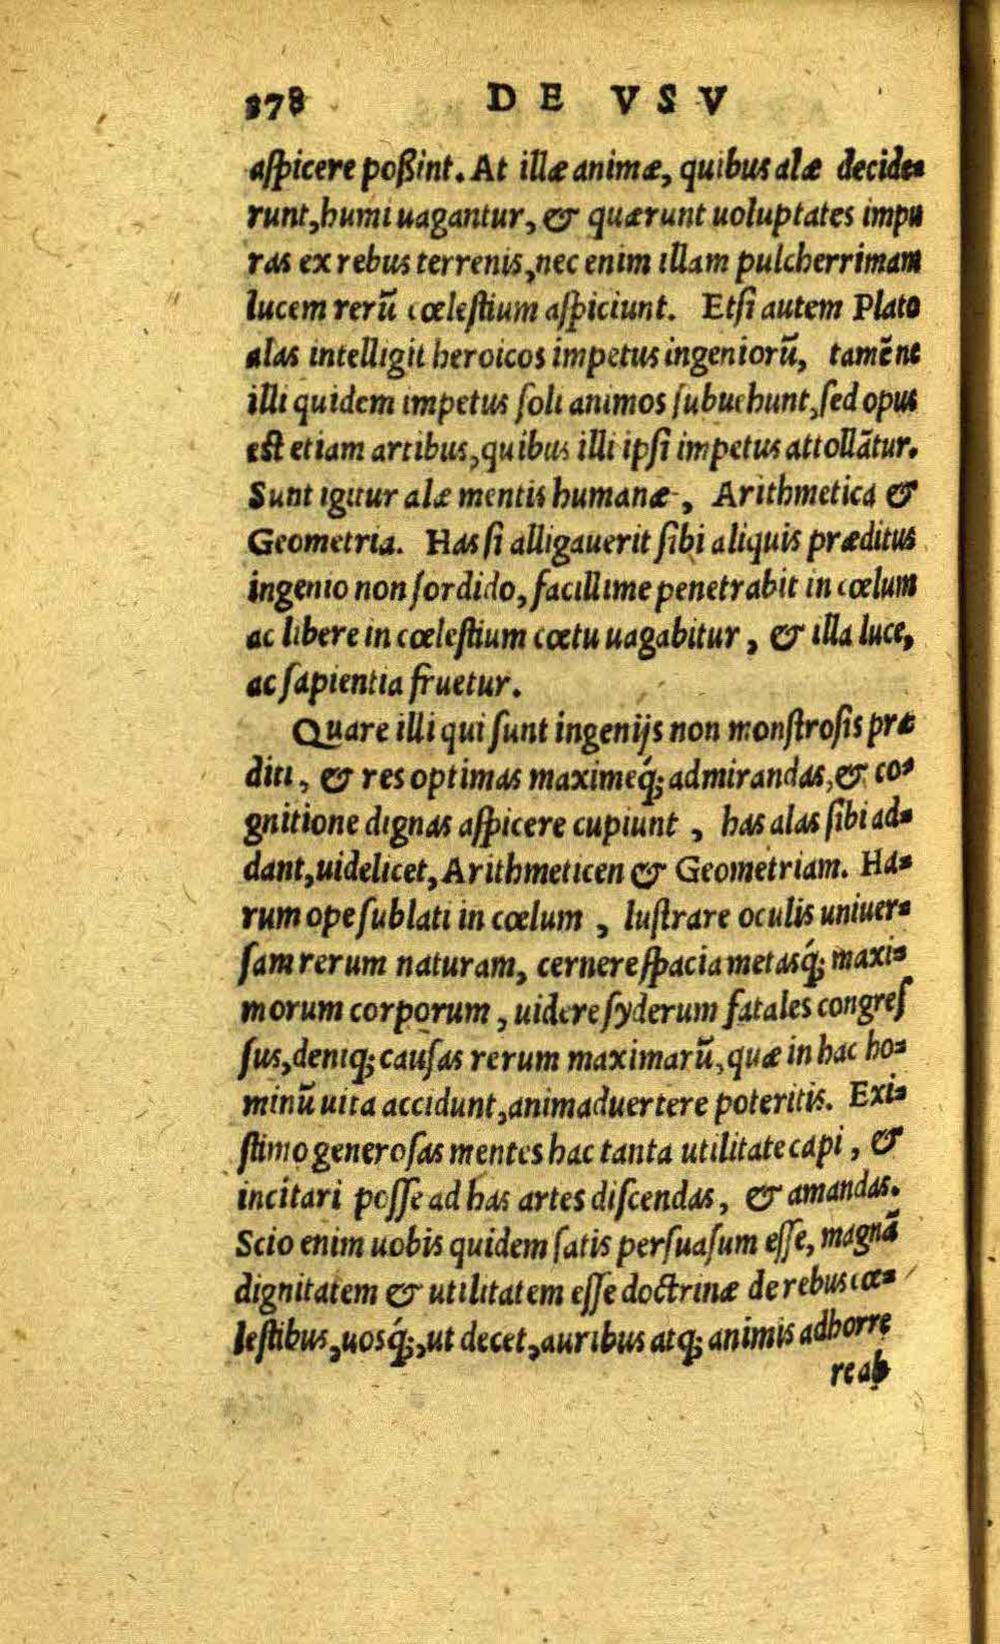 378 DE VSV
aſpicere poßint. At illæ animæ, quibus alæ decide=
runt, humi uagantur, & quærunt uoluptates impu
ras ex rebus terrenis, nec enim illam pulcherrimam
lucem rerũ cœleſtium aſpiciunt. Etſi autem Plato
alas intelligit heroicos impetus ingeniorũ, tamẽ ne
illi quidem impetus ſoli animos ſubuehunt, ſed opus
eſt etiam artibus, quibus illi ipſi impetus attollãtur.
Sunt igitur alæ mentis humanæ, Arithmetica &
Geometria. Has ſi alligauerit ſibi aliquis præditus
ingenio non ſordido, facillime penetrabit in cœlum
ac libere in cœleſtium cœtu uagabitur, & illa luce,
ac ſapientia fruetur.
Quare illi qui ſunt ingenijs non monſtroſis præ
diti, & res optimas maximeq́; admirandas, & co=
gnitione dignas aſpicere cupiunt, has alas ſibi ad=
dant, uidelicet, Arithmeticen & Geometriam. Ha=
rum ope ſublati in cœlum, luſtrare oculis uniuer=
ſam rerum naturam, cernere ſpacia metasq́; maxi=
morum corporum, uidere ſyderum fatales congreſ
ſus, deniq; cauſas rerum maximarũ, quæ in hac ho=
minũ uita accidunt, animaduertere poteritis. Exi=
ſtimo generoſas mentes hac tanta utilitate capi, &
incitari poſſe ad has artes diſcendas, & amandas.
Scio enim uobis quidem ſatis perſuaſum eſſe, magnã
dignitatem & utilitatem eſſe doctrinæ de rebus cœ=
leſtibus, uosq́;, ut decet, auribus atq; animis adhorre
re ab